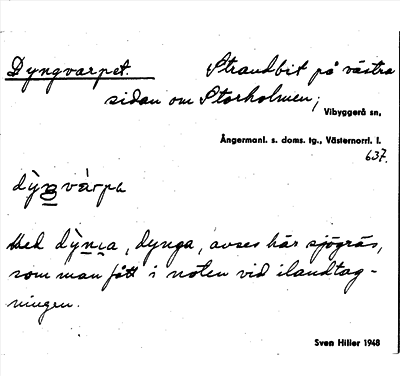 Dyngvarpet. Strandbit på västra
sidan om Storholmen;
Vibyggerå sn,
Ångermanl. s. doms. tg., Västernorrl. l.
637.
dỳŋvárpa
Med dỳŋa, dynga, avses här sjögräs,
som man fått i noten vid ilandtag-
ningen.
Sven Hiller 1948